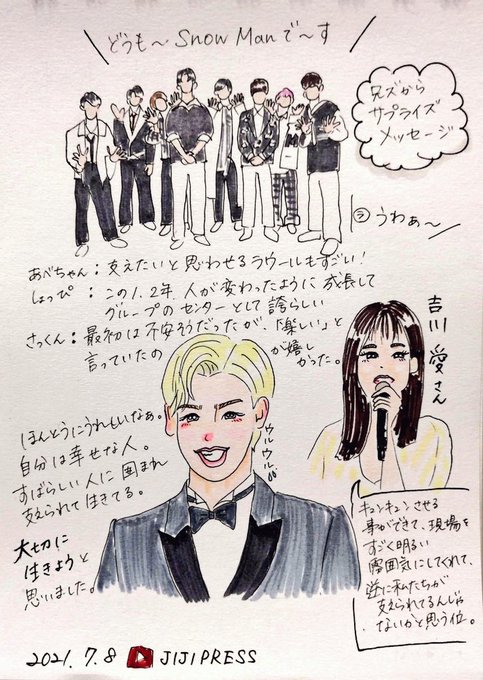 どうも〜 Snow Manで〜す
兄ズから
サプライズ
メッセージ
ラ うわぁ〜
あべちゃん：支えたいと思わせるラウールもすごい！
しょっぴ：この1.2年、人が変わったように成長して
グループのセンターとして誇らしい
さっくん：最初は不安そうだったが、「楽しい」と
言っていたの
が嬉し
かった。
吉川 愛さん
ほんとうにうれしいなぁ。
自分は幸せな人。
すばらしい人に囲まれ
支えられて生きてる。
大切に
生きようと
思いました。
ウルウル
キュンキュンさせる
事ができて、現場を
すごく明るい
雰囲気にしてくれて、
逆に私たちが
支えられてるんじゃ
ないかと思う位。
2021.7.8 JIJIPRESS